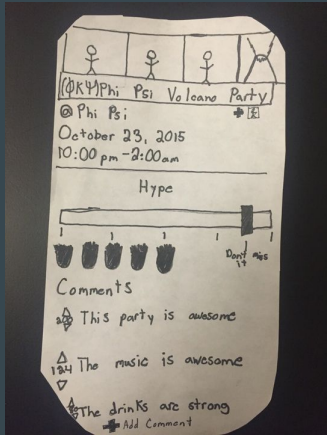 (ΦΚΨ) Phi Psi Volcano Party
@ Phi Psi
October 23, 2015
10:00 pm - 2:00am
Hype
Don't miss it
Comments
This party is awesome
124 The music is awesome
The drinks are strong
Add Comment